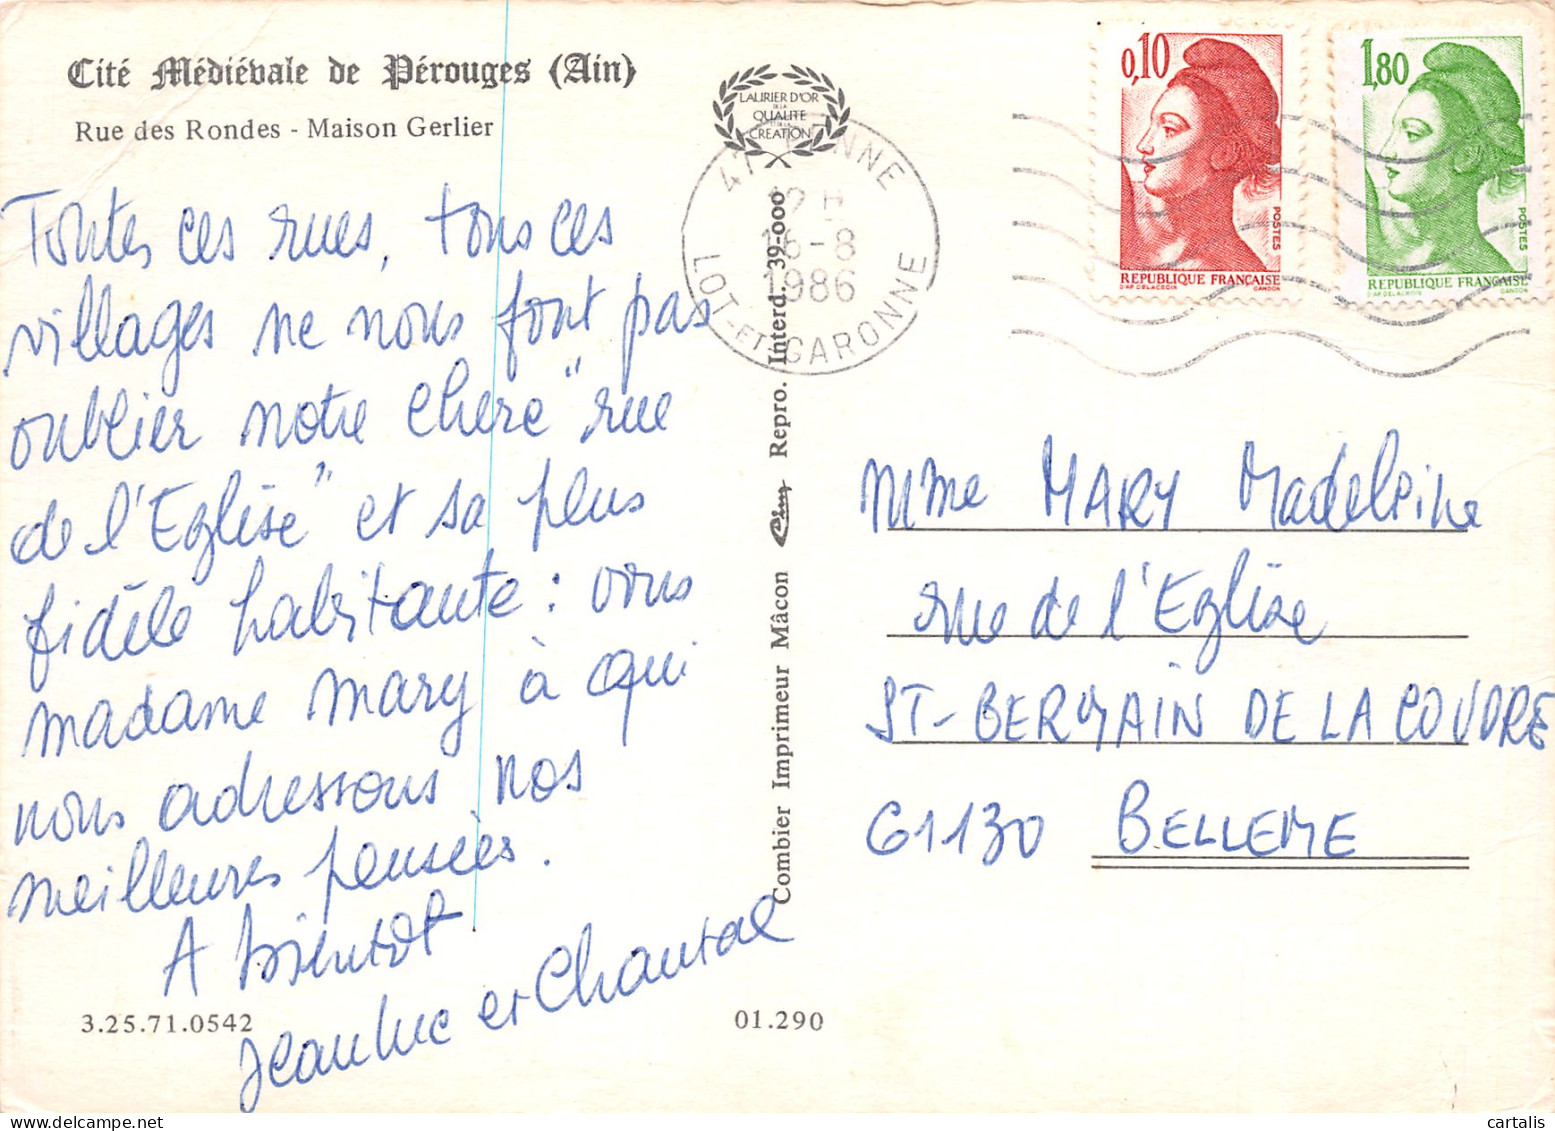 Cité Médiévale de Pérouges (Ain)
Rue des Rondes - Maison Gerlier
Toutes ces rues, tous ces
villages ne nous font pas
oublier notre chere "rue
de l'Eglise" et sa plus
fidèle habitante : vous
madame Mary à qui
nous adressons nos
meilleures pensées.
A bientot
Jeanluc et Chantal
3.25.71.0542
01.290
LAURIER D'OR
DE LA
QUALITE
CREATION
47
12 H
16-8
1986
LOT-ET-GARONNE
Combier Imprimeur Mâcon Cim Repro. Interd. 39-000
0,10
POSTES
REPUBLIQUE FRANÇAISE
D'AP. DELACROIX GANDON
1,80
POSTES
REPUBLIQUE FRANÇAISE
D'AP. DELACROIX GANDON
Mme MARY Madeleine
rue de l'Eglise
ST-GERMAIN DE LA COUDRE
61130 BELLEME
cartalis